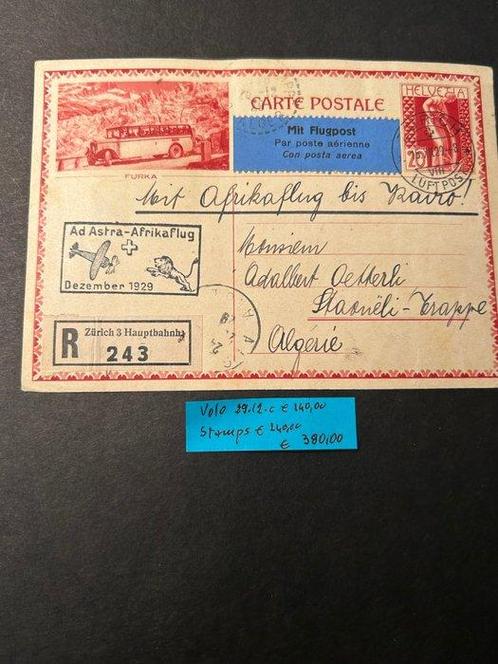 CARTE POSTALE
HELVETIA
Mit Flugpost
Par poste aérienne
Con posta aerea
FURKA
25
VIII
LUFTPOST
Mit Afrikaflug bis Kairo!
Ad Astra-Afrikaflug
Dezember 1929
Monsieur
Adalbert Oetterli
Staouëli-Trappe
Algérie
R
Zürich 3 Hauptbahnh.
243
Volo 29.12.c € 140,00
Stamps € 240,00
€ 380,00